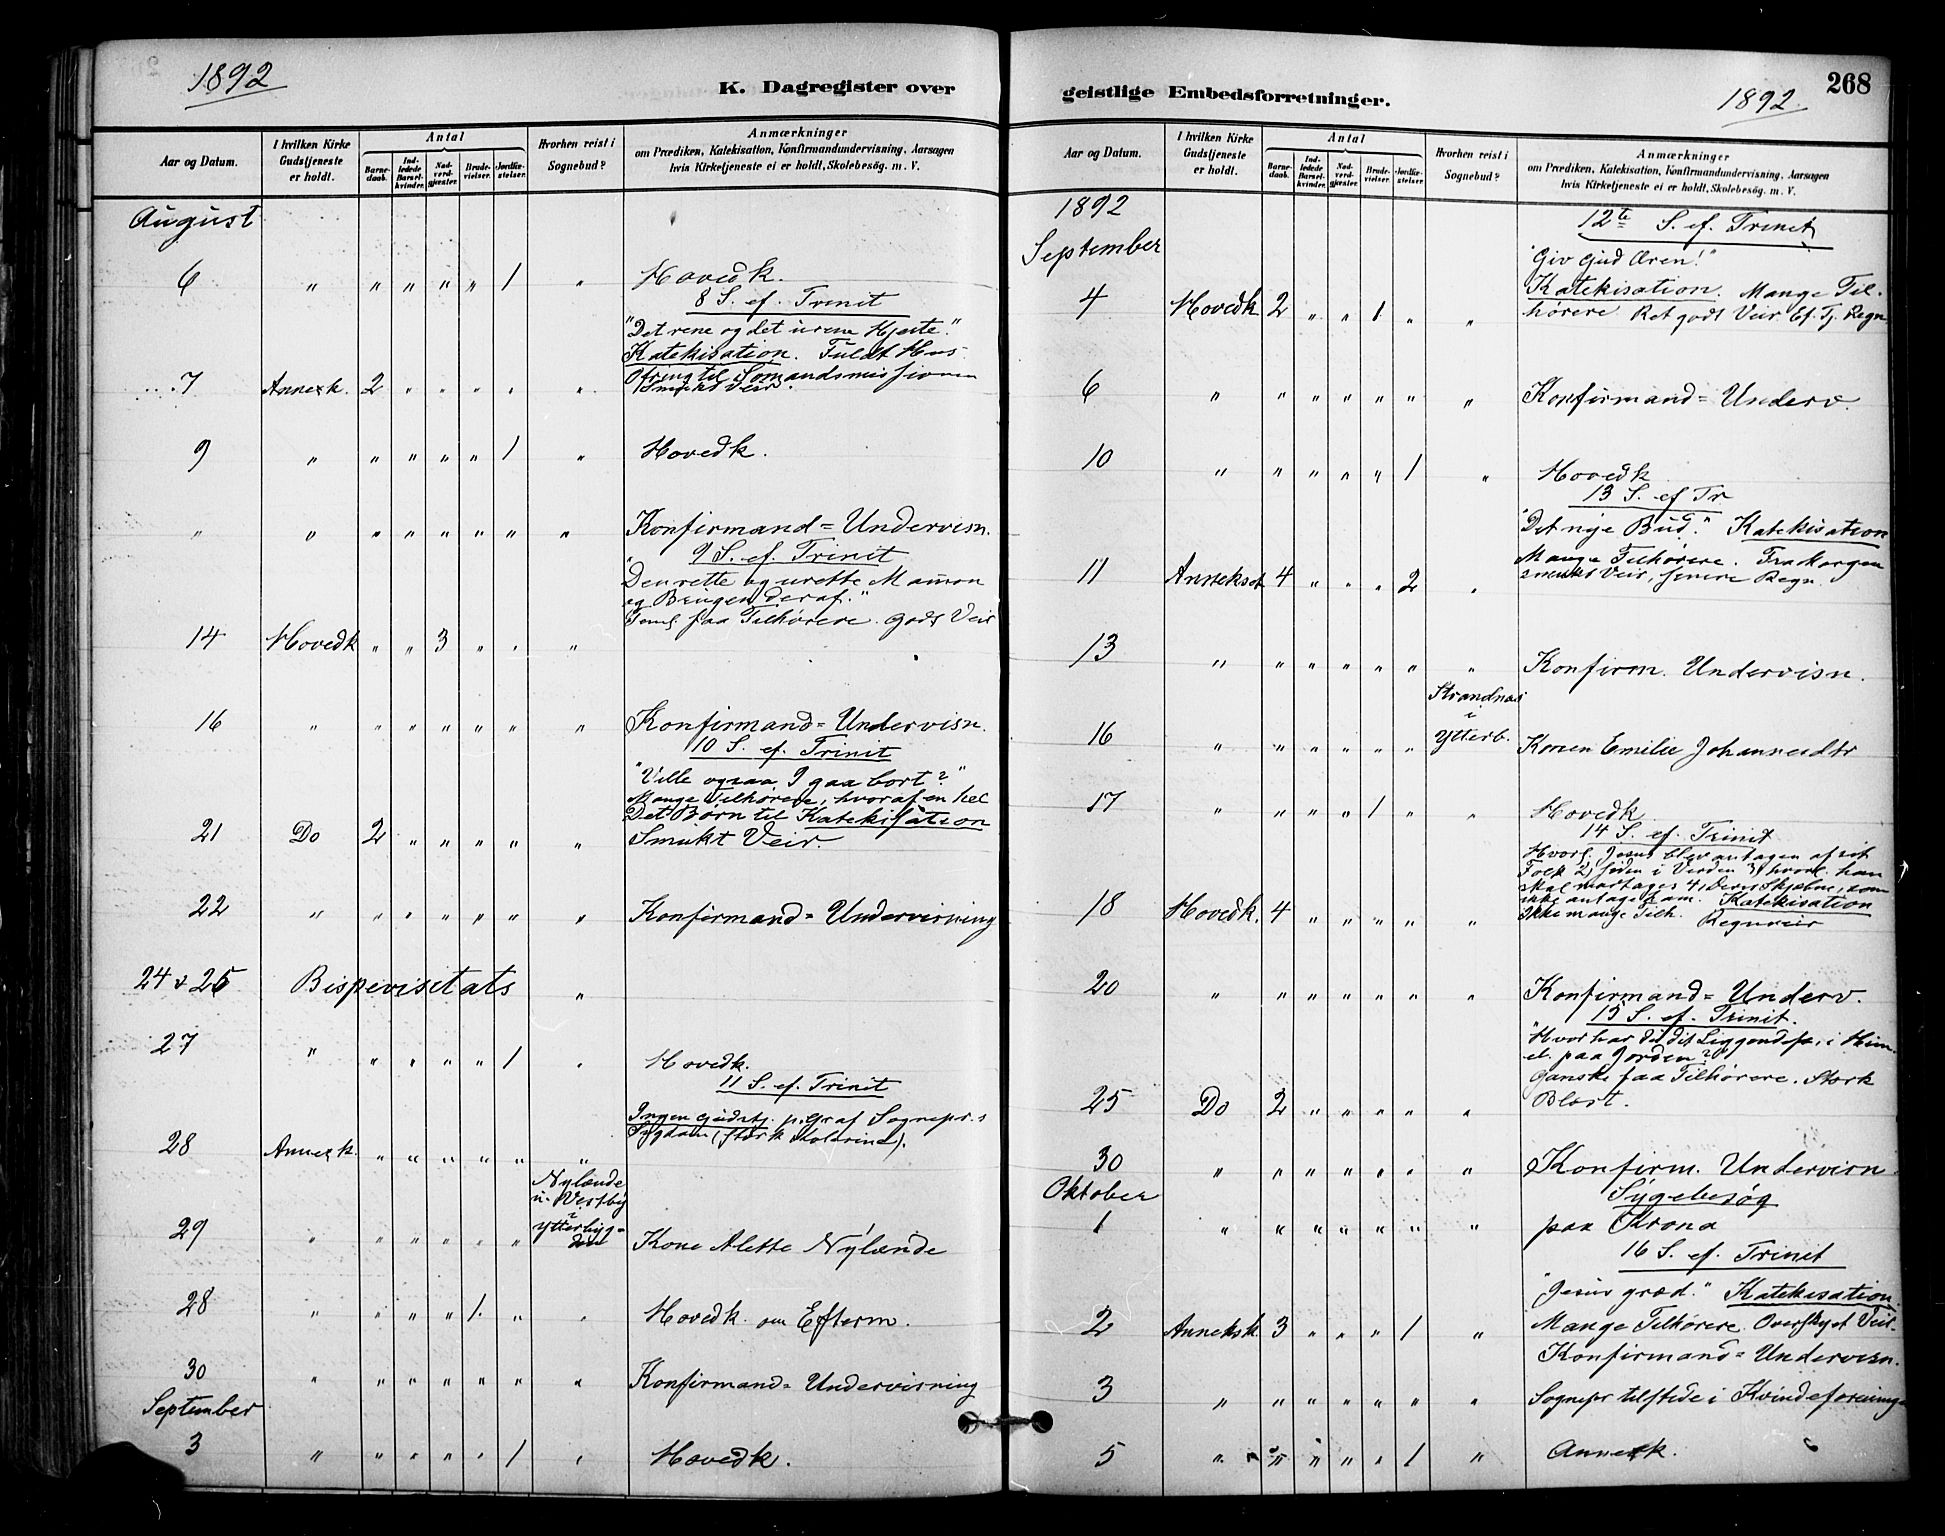 1892
K. Dagregister over
Aar og Datum.
I hvilken Kirke Gudstjeneste er holdt.
Antal
Barnedaab.
Indledede Barselkvinder.
Nadverdgjæster.
Brudevielser.
Jordfæstelser.
Hvorhen reist i Sognebud?
Anmærkninger
om Prædiken, Katekisation, Konfirmandundervisning, Aarsagen
hvis Kirketjeneste ei er holdt, Skolebesøg. m. V.
August
6 " " " " " 1 " Hovedk.
8 S. ef. Trinit
"Det rene og det urene Hjerte."
Katekisation. Fuldt Hus
Ofring til Sømandsmissionen
7 Annexk. 2 " " " " " Smukt Veir.
9 " " " " " 1 " Hovedk.
" " " " " " " " Konfirmand=Undervisn.
9 S. ef. Trinit
"Den rette og urette Mamon
og Brugen deraf."
faa Tilhørere. godt Veir
14 Hovedk " " 3 " " "
16 " " " " " " " Konfirmand=Undervisn.
10 S. ef. Trinit
"Ville ogsaa I gaa bort?"
Mange Tilhørere, hvoraf en hel
Del Børn til Katekisation
21 Do 2 " " " " " Smukt Veir.
22 " " " " " " " Konfirmand=Undervisning
24 & 25 Bispevisitats "
27 " " " " " 1 " Hovedk.
11 S. ef. Trinit
Ingen Gudstj. p. Gr af Sognepr.s
Sygdom (stærk Kolerine).
28 Annexk. " " " " " "
Nylænde
u. Vestby
i
29 " " " " " " Ytterbygdin Kone Alette Nylænde
28 " " " " 1. " " Hovedk. om Efterm.
30 " " " " " " " Konfirmand=Undervisning
September
3 " " " " " 1 " Hovedk.
geistlige Embedsforretninger.
1892.
268
Aar og Datum.
I hvilken Kirke Gudstjeneste er holdt.
Antal
Barnedaab.
Indledede Barselkvinder.
Nadverdgjæster.
Brudevielser.
Jordfæstelser.
Hvorhen reist i Sognebud?
Anmærkninger
om Prædiken, Katekisation, Konfirmandundervisning, Aarsagen
hvis Kirketjeneste ei er holdt, Skolebesøg. m. V.
1892
September
12te S. ef. Trinit
"Giv Gud Æren!"
Katekisation. Mange Til-
4 Hovedk 2 " " 1 " " hørere Ret godt Veir Ef. Tj. Regn
6 " " " " " " " Konfirmand=Underv.
10 " " " " " 1 " Hovedk
13 S. ef Tr
"Det nye Bud." Katekisation
Mange Tilhørere. Fra Morgen
11 Annekset 4 " " " 2 " smukt Veir, senere Regn.
13 " " " " " " " Konfirm. Undervisn.
Strandnæs
i
16 " " " " " " Ytterb. Konen Emilie Johannesdtr
17 " " " " 1 " " Hovedk.
14 S. ef. Trinit
Hvorl. Jesus blev antagen af sit
Folk 2) siden i Verden 3) hvorl. han
skal modtages 4, deres Skjæbne, som
ikke antage ham. Katekisation
18 Hovedk. 4 " " " " " Ikke mange Tilh. Regnveir
20 " " " " " " " Konfirmand=Underv.
15 S. ef. Trinit.
"Hvor har du dit Liggendefæ, i Him-
el. paa Jorden?"
Ganske faa Tilhørere. Stærk
25 Do 2 " " " " " Blæst.
30 " " " " " " " Konfirm. Undervisn
Oktober
Sygebesøg
1 " " " " " " " paa Krona
16 S. ef. Trinit
"Jesus græd." Katekisation
2 Anneksk 3 " " " 1 " Mange Tilhørere. Overskyet Veir.
Konfirmand=Undervisn.
3 " " " " " " " Sognepr tilstede i Kvindeforening
5 " " " " " 1 " Annexk.